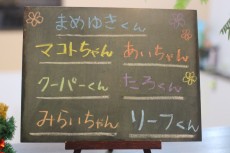 まめゆきくん
マコトちゃん あいちゃん
クーパーくん たろくん
みらいちゃん リーフくん